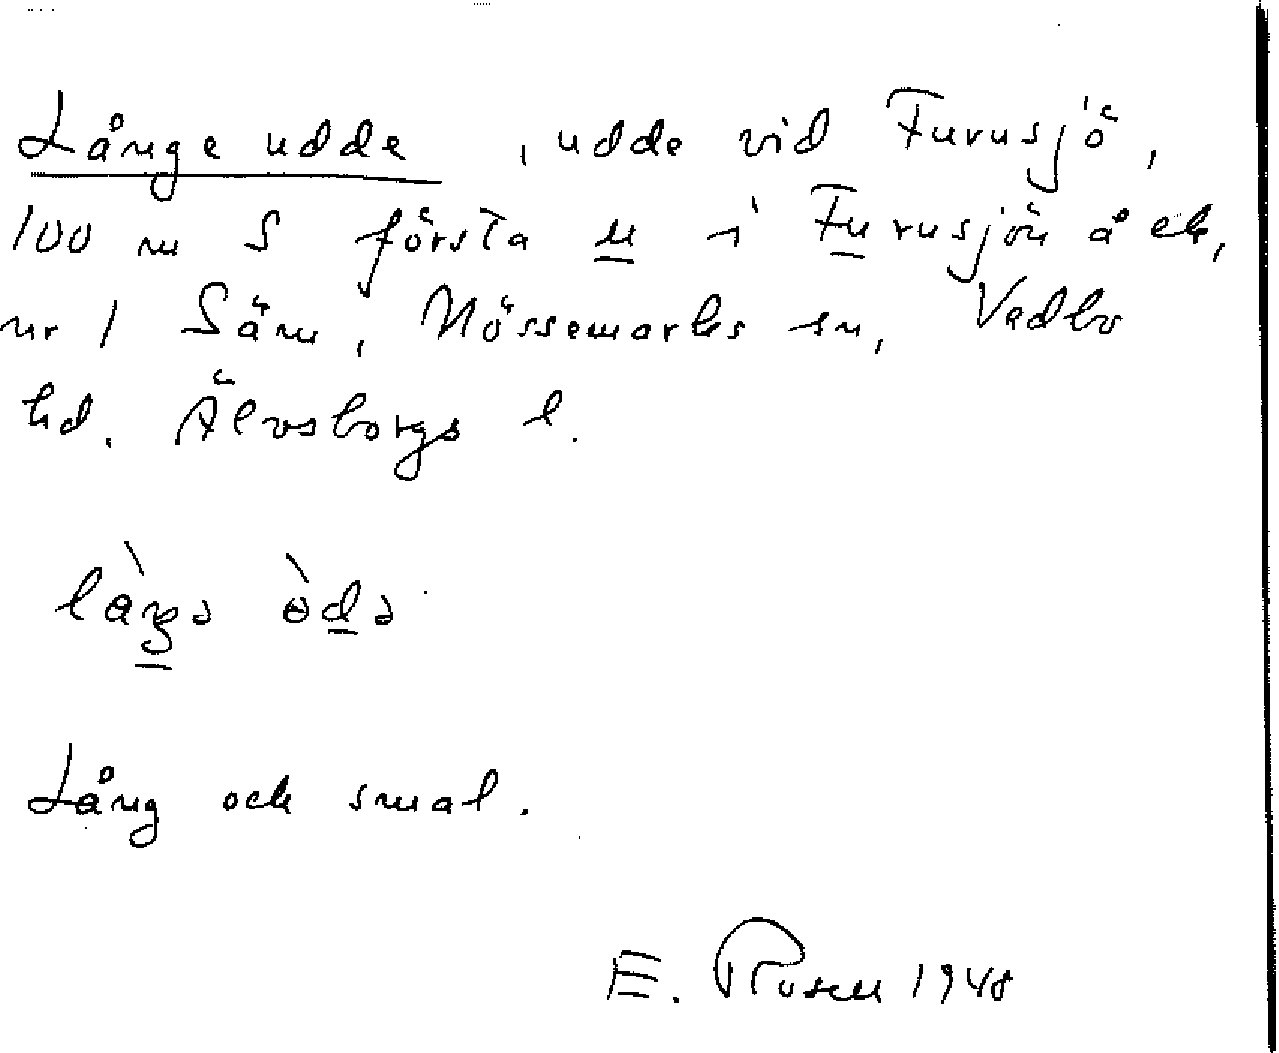 Långe udde, udde vid Furusjö,
100 m S första u i Furusjön å ek,
nr 1 Säm, Nössemarks sn, Vedbo
hd. Älvsborgs l.
Lång och smal.
E. Rosell 1948